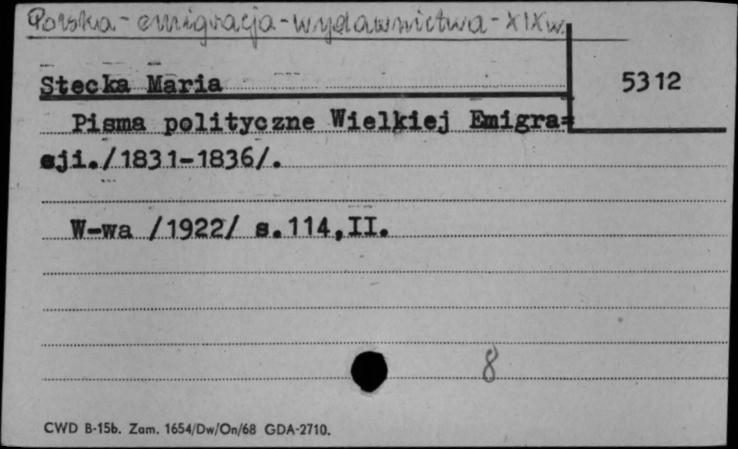 Polska - emigracja - wydawnictwa - XIX w.
Stecka Maria
5312
Pisma polityczne Wielkiej Emigra=
cji./1831-1836/.
W-wa /1922/ s.114,II.
8
CWD B-15b. Zam. 1654/Dw/On/68 GDA-2710.